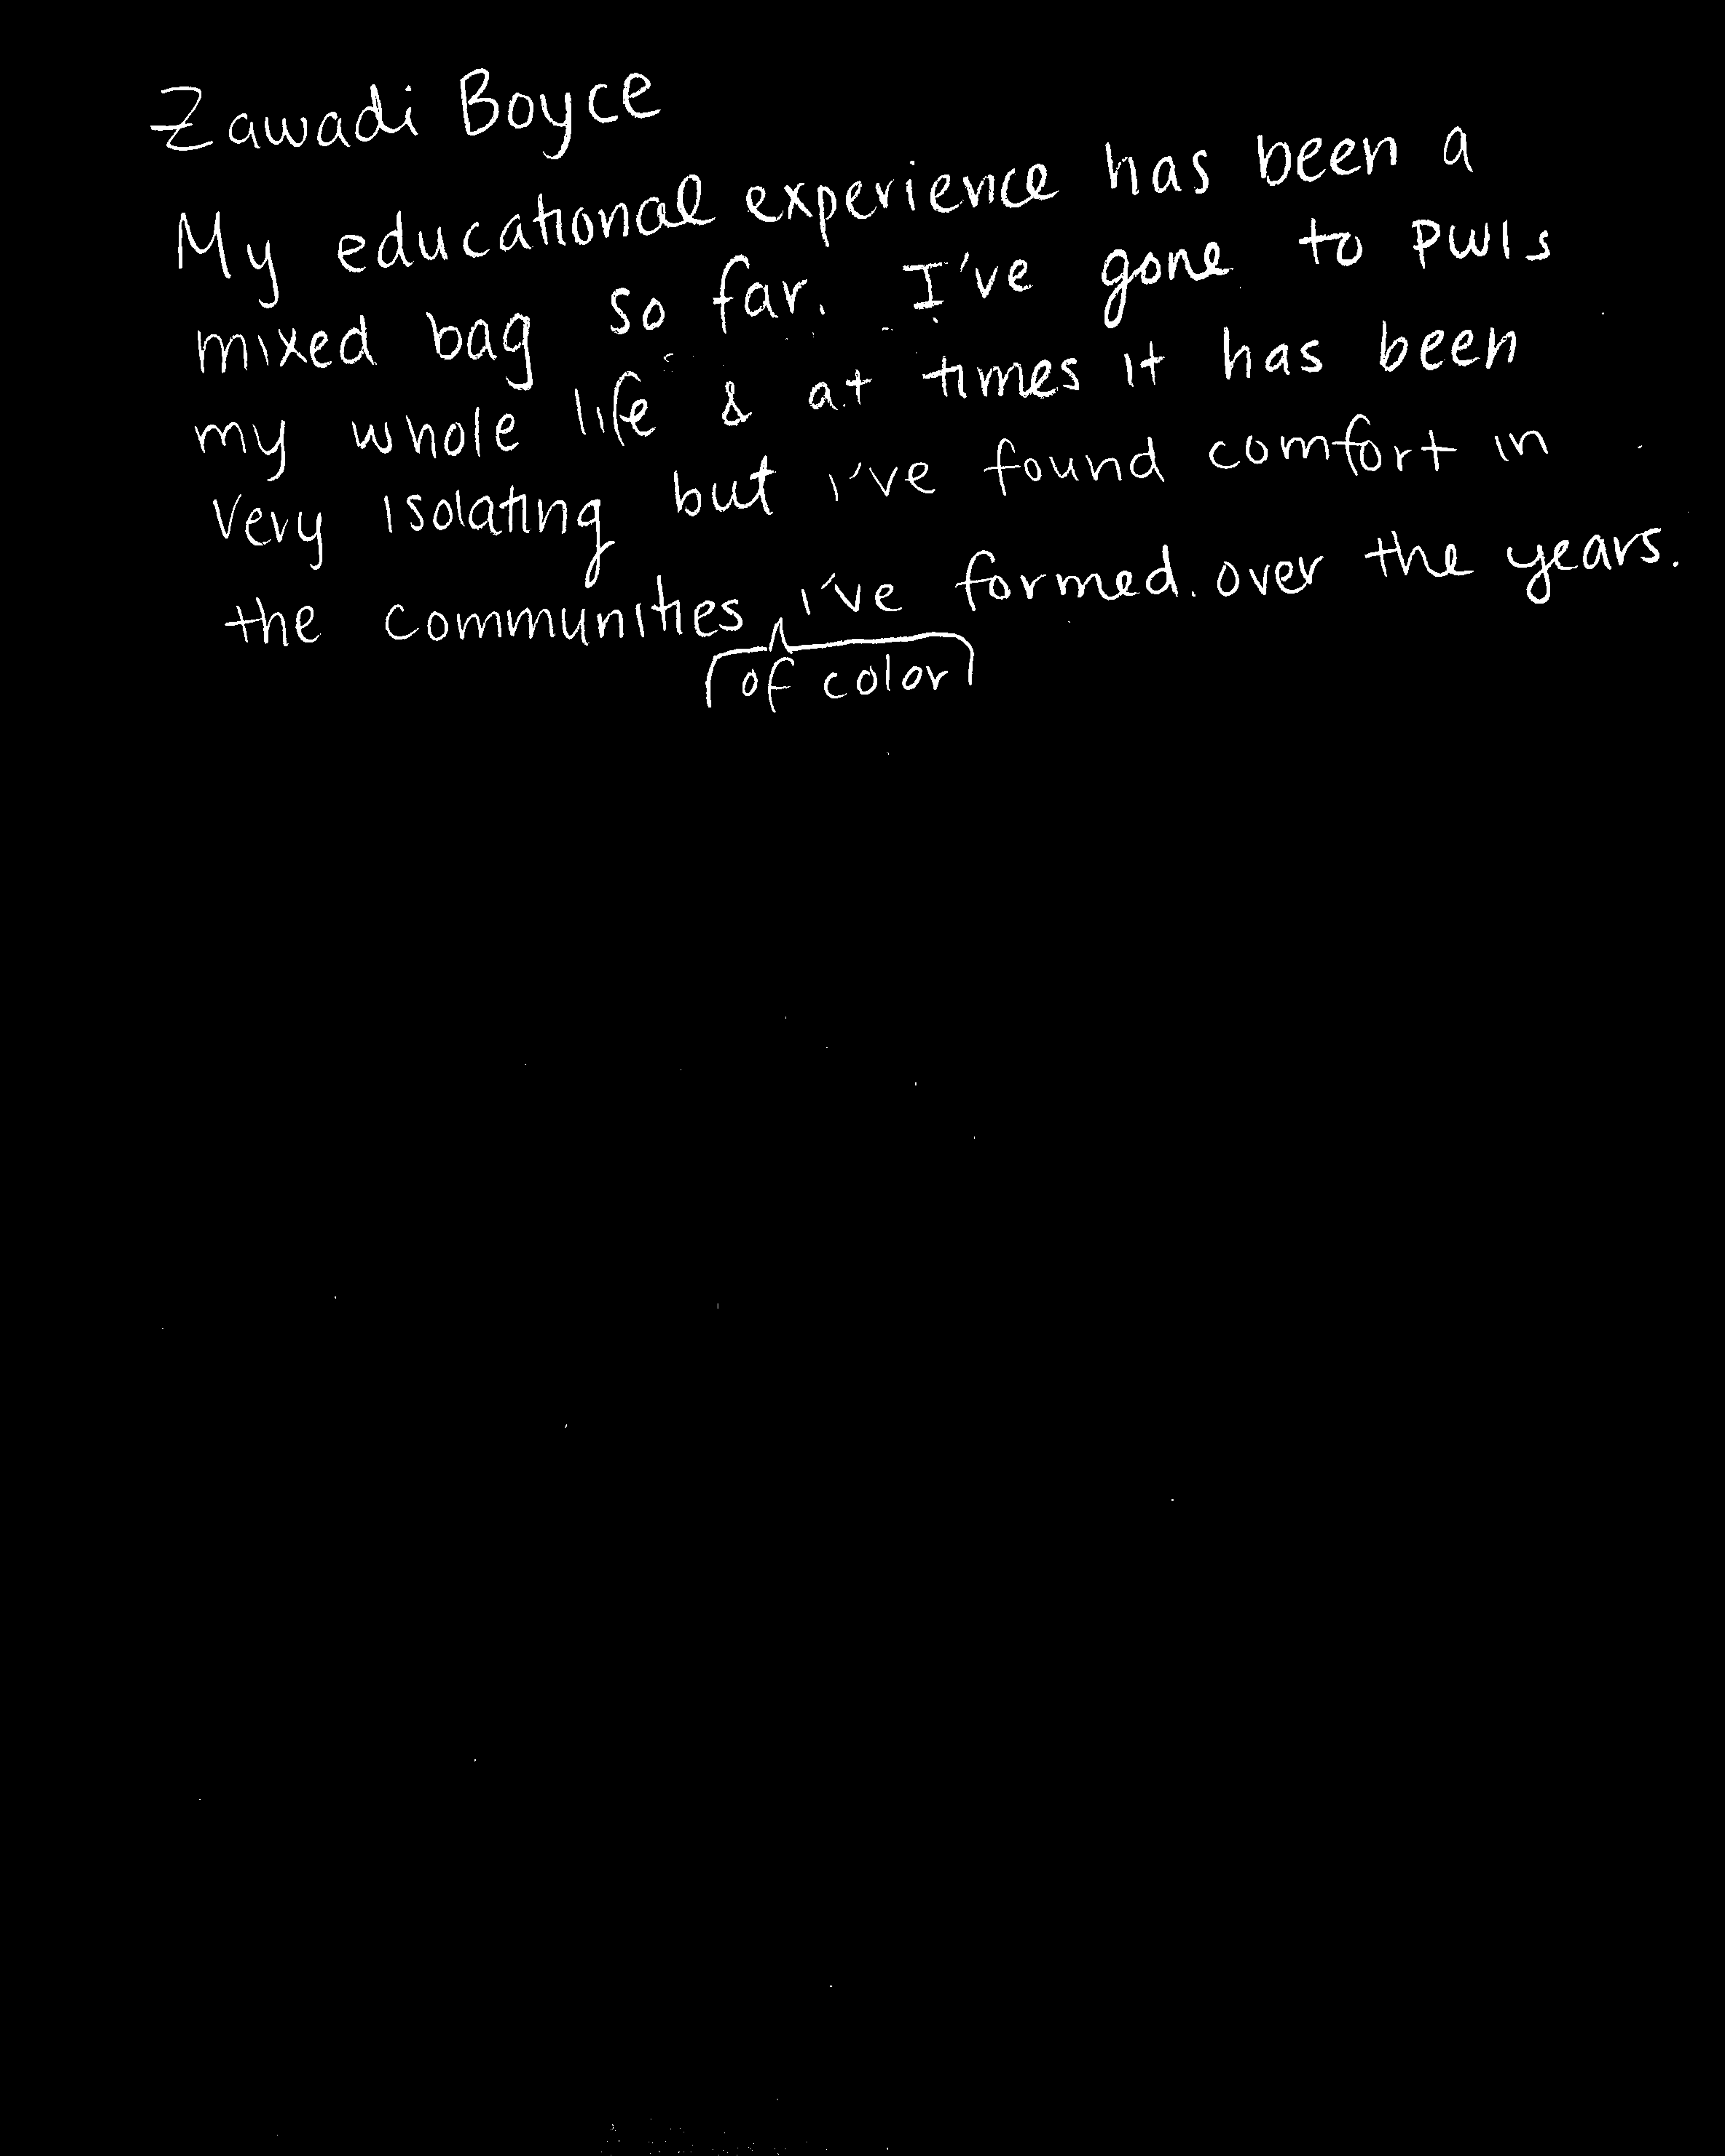 Zawadi Boyce
My educational experience has been a
mixed bag so far. I've gone to PWIs
my whole life & at times it has been
very isolating but i've found comfort in
the communities i've formed. over the years.
of color